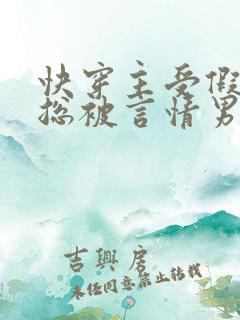 快穿主受假
总被言情男
吉興 房
未经同意禁止转载